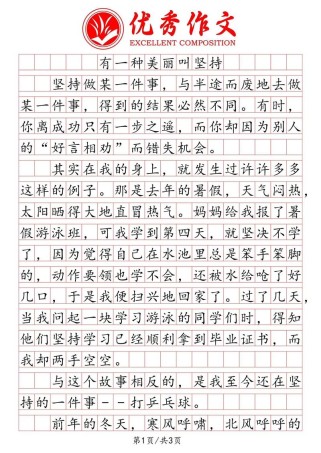 优秀作文
EXCELLENT COMPOSITION
有一种美丽叫坚持
坚持做某一件事，与半途而废地去做
某一件事，得到的结果必然不同。有时，
你离成功只有一步之遥，而你却因为别人
的“好言相劝”而错失机会。
其实在我的身上，就发生过许许多多
这样的例子。那是去年的暑假，天气闷热，
太阳晒得大地直冒热气。妈妈给我报了暑
假游泳班，可我学到第四天，就坚决不学
了，因为觉得自己在水池里总是笨手笨脚
的，动作要领也学不会，还被水给呛了好
几口，于是我便扫兴地回家了。过了几天，
当我问起一块学习游泳的同学们时，得知
他们坚持学习已经顺利拿到毕业证书，而
我却两手空空。
与这个故事相反的，是我至今还在坚
持的一件事--打乒乓球。
前年的冬天，寒风呼啸，北风呼呼的
第1页/共3页